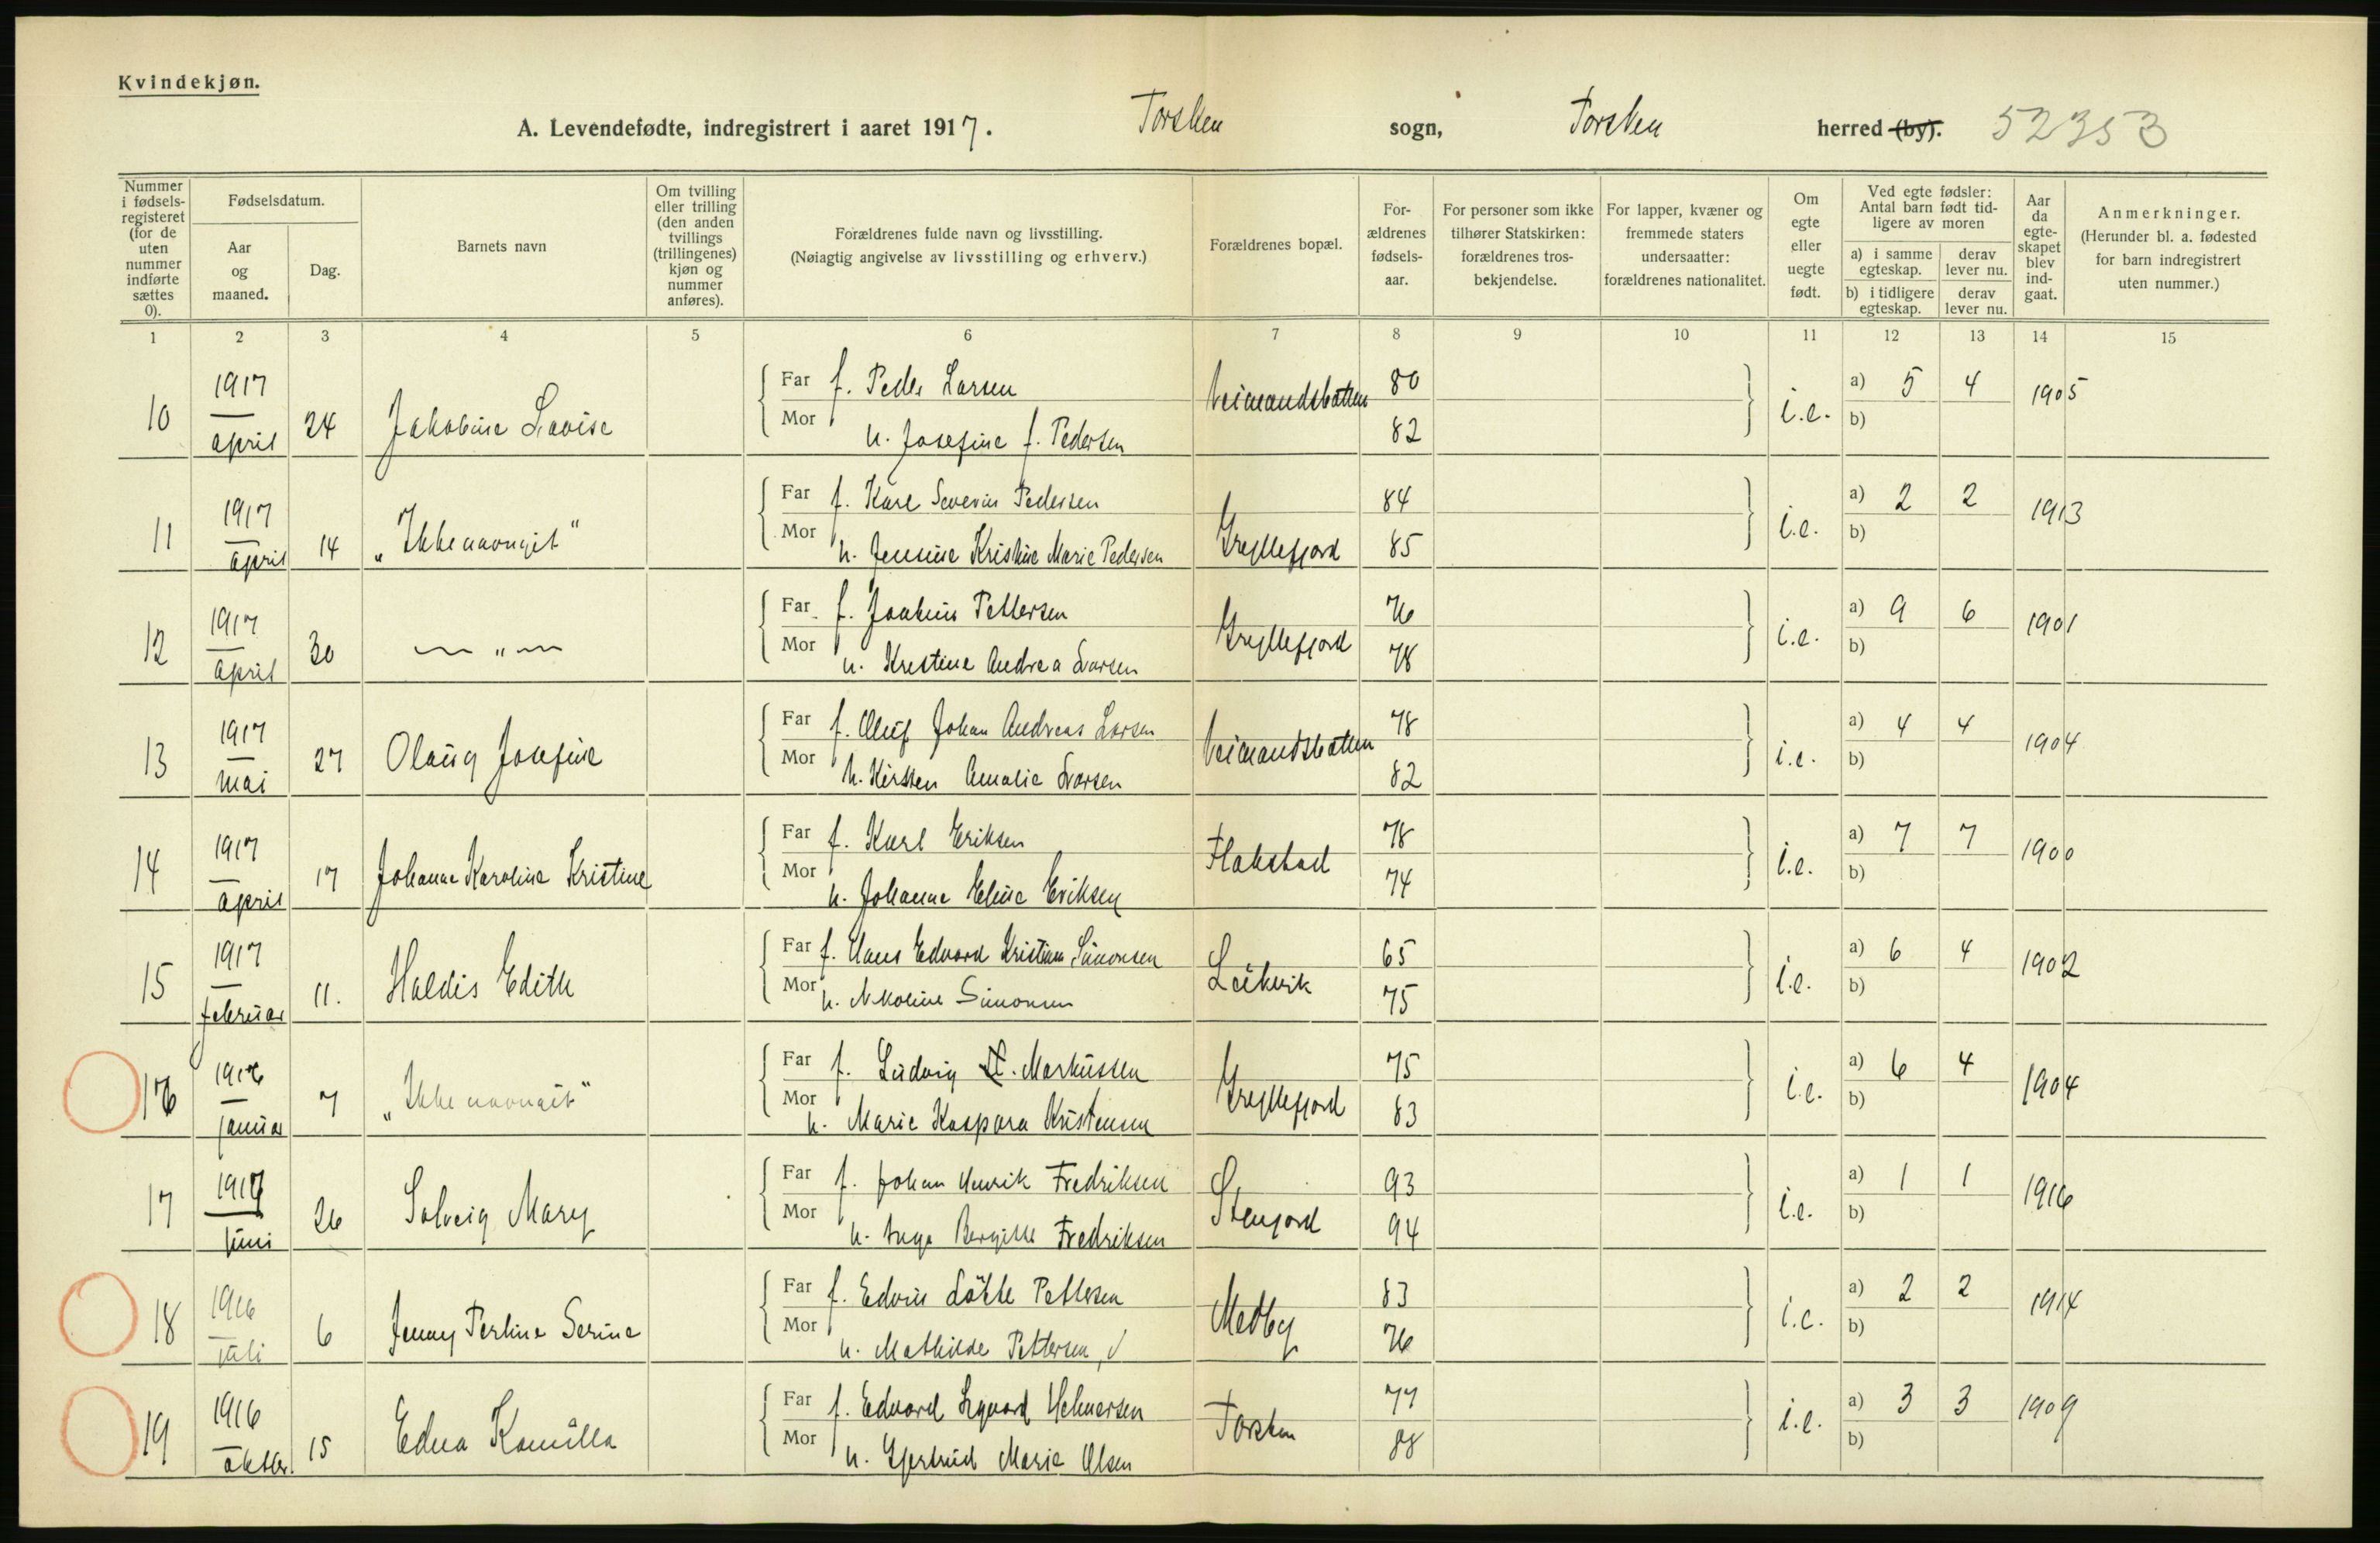 Kvindekjøn.
A. Levendefødte, indregistrert i aaret 1917. Torsken sogn, Torsken herred (by). 52353
Nummer i fødsels-registeret (for de uten nummer indførte sættes 0).
Fødselsdatum.
Aar og maaned.
Dag.
Barnets navn
Om tvilling eller trilling (den anden tvillings (trillingenes) kjøn og nummer anføres).
Forældrenes fulde navn og livsstilling.
(Nøiagtig angivelse av livsstilling og erhverv.)
Forældrenes bopæl.
For-ældrenes fødsels-aar.
For personer som ikke tilhører Statskirken: forældrenes tros-bekjendelse.
For lapper, kvæner og fremmede staters undersaatter: forældrenes nationalitet.
Om egte eller uegte født.
Ved egte fødsler: Antal barn født tid-ligere av moren
a) i samme egteskap. derav lever nu.
b) i tidligere egteskap. derav lever nu.
Aar da egte-skapet blev ind-gaat.
Anmerkninger.
(Herunder bl. a. fødested for barn indregistrert uten nummer.)
1 2 3 4 5 6 7 8 9 10 11 12 13 14 15
10 1917 april 24 Jakobine Lovise Far f. Peder Larsen 80 i.e. a) 5 4 1905
Mor h. Josefine f. Pedersen 82 b)
11 1917 april 14 "Ikke navngit" Far f. Kare Severin Pedersen Gryllefjord 84 i.e. a) 2 2 1913
Mor h. Jensine Kristine Marie Pedersen 85 b)
12 1917 april 30 — " — Far f. Joakim Pettersen Gryllefjord 76 i.e. a) 9 6 1901
Mor h. Kristine Andrea Larsen 78 b)
13 1917 mai 27 Olaug Josefine Far f. Oluf Johan Andreas Larsen 78 i.e. a) 4 4 1904
Mor h. Kirsten Amalie Larsen 82 b)
14 1917 april 17 Johanne Karoline Kristine Far f. Karl Eriksen Flakstad 78 i.e. a) 7 7 1900
Mor h. Johanne Eline Eriksen 74 b)
15 1917 februar 11. Haldis Edith Far f. Hans Edvard Kristian Simonsen Leikvik 65 i.e. a) 6 4 1902
Mor h. Nikoline Simonsen 75 b)
16 1916 januar 7 "Ikke navngit" Far f. Ludvig Markussen Gryllefjord 75 i.e. a) 6 4 1904
Mor h. Marie Kaspara Kristensen 83 b)
17 1917 juni 26 Solveig Mary Far f. Johan Henrik Fredriksen Stenfjord 93 i.e. a) 1 1 1916
Mor h. Inga Bergitte Fredriksen 94 b)
18 1916 juli 6 Jenny Perline Serine Far f. Edvin Pettersen Medby 83 i.e. a) 2 2 1914
Mor h. Mathilde Pettersen 76 b)
19 1916 oktbr. 15 Edna Kamilla Far f. Edvard Sigvard Helmersen Torsken 77 i.e. a) 3 3 1909
Mor h. Gjertrud Marie Olsen 88 b)